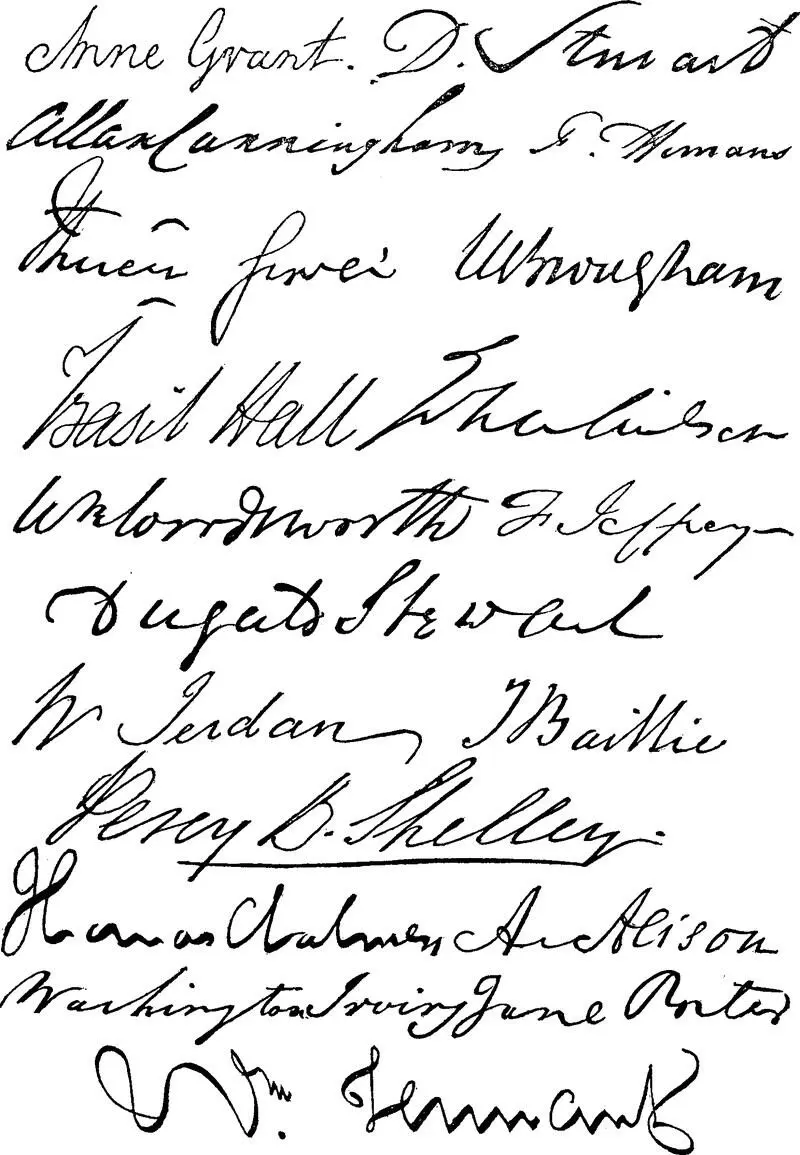 Anne Grant. D. Stuart
Allan Cunningham F. Hemans
Brougham
Basil Hall
Wm Wordsworth F. Jeffrey
Dugald Stewart
W Jerdan J Baillie
Percy B. Shelley.
Thomas Chalmers Ar Alison
Washington Irving Jane Porter
Wm. Tennant